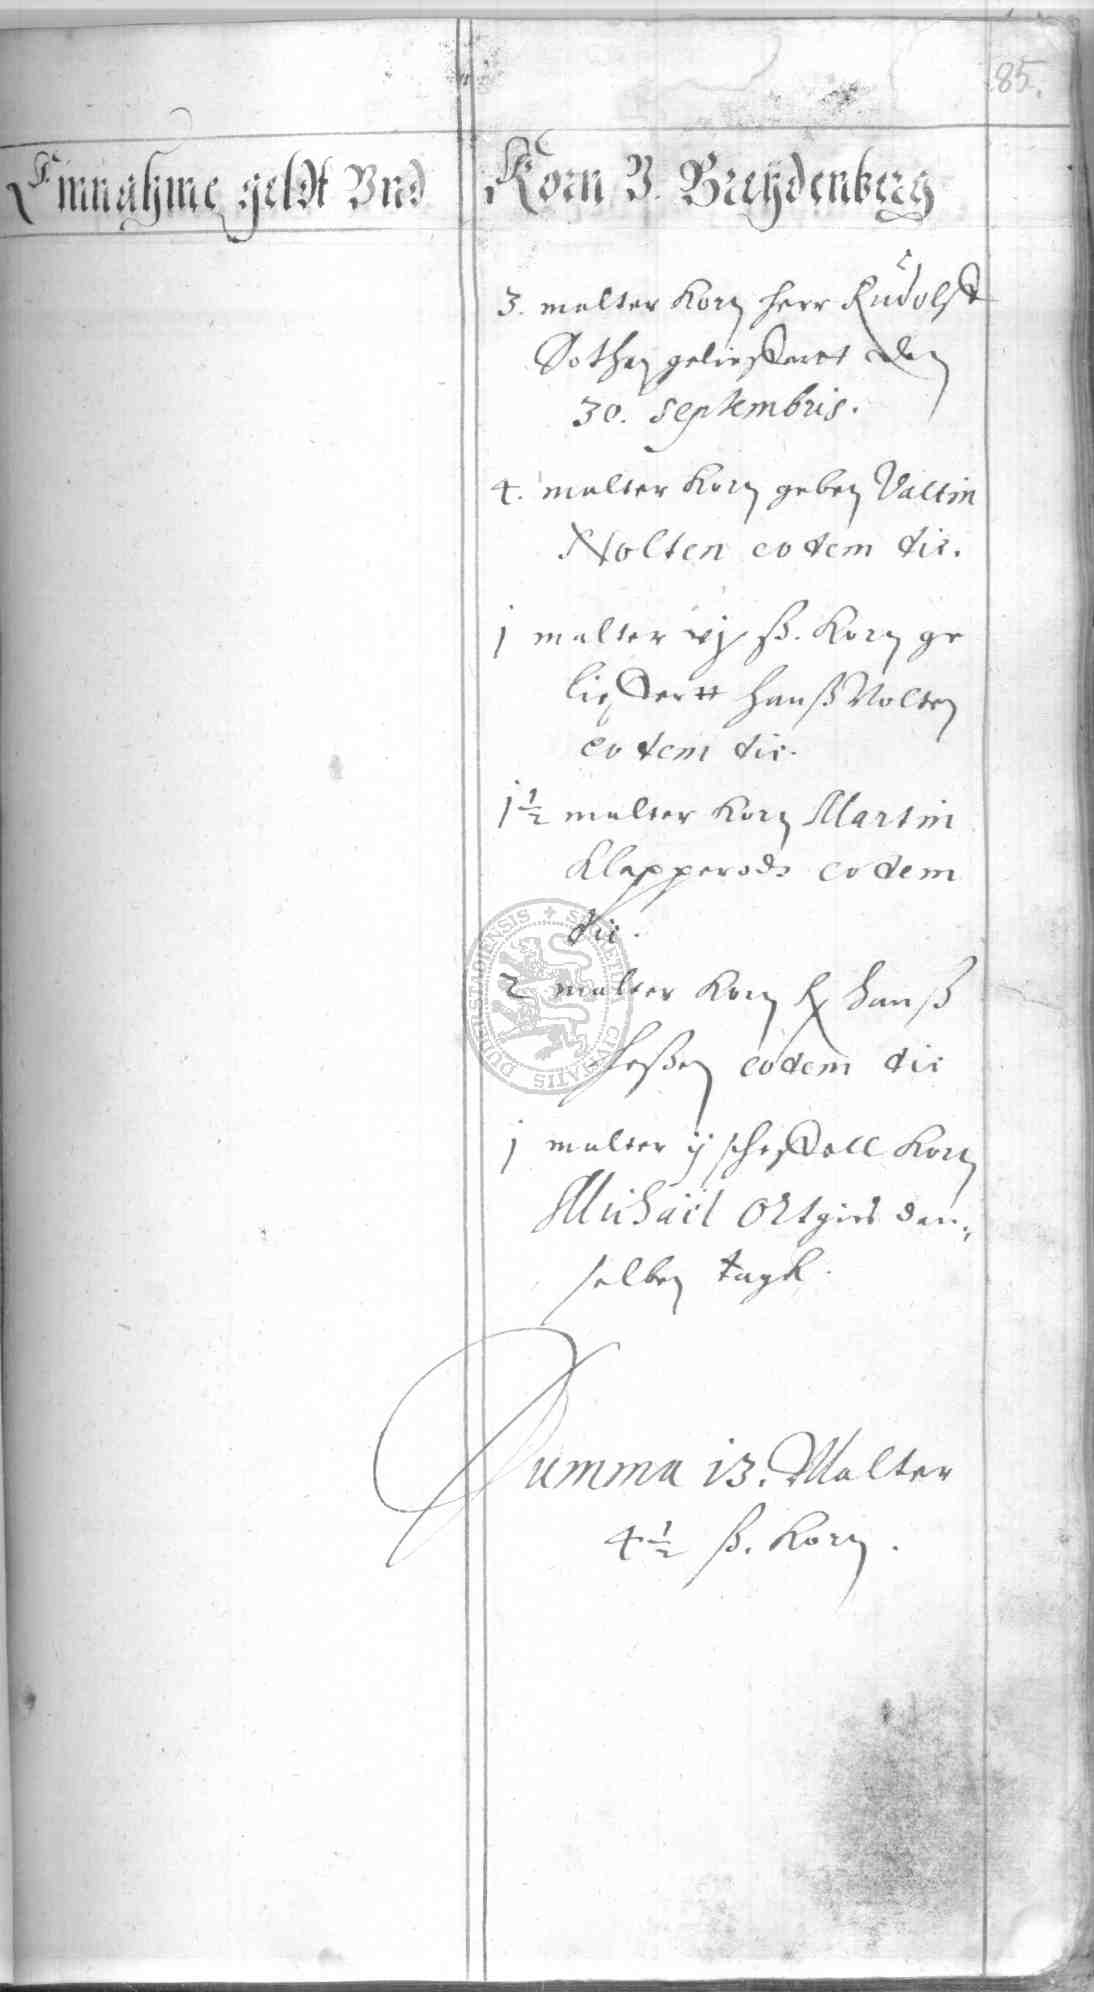 85.
Einnahme geldt Vnd Korn V. Breÿdenberg
3. malter Korn herr Rudolff
Bothen gelieffertt den
30. septembris.
4. malter Korn geben Valtin
Nolten eodem die.
j malter vj ß. Korn ge
lieffertt Hanß Nolten
eodem die.
j ½ malter Korn Martin
Klapperodt eodem
die.
2 malter Korn Hanß
Heßen eodem die
j malter ij scheffell Korn
Michaël Ortgies den„
selben tagk.
Summa 13. Malter
4 ½ ß. Korn.